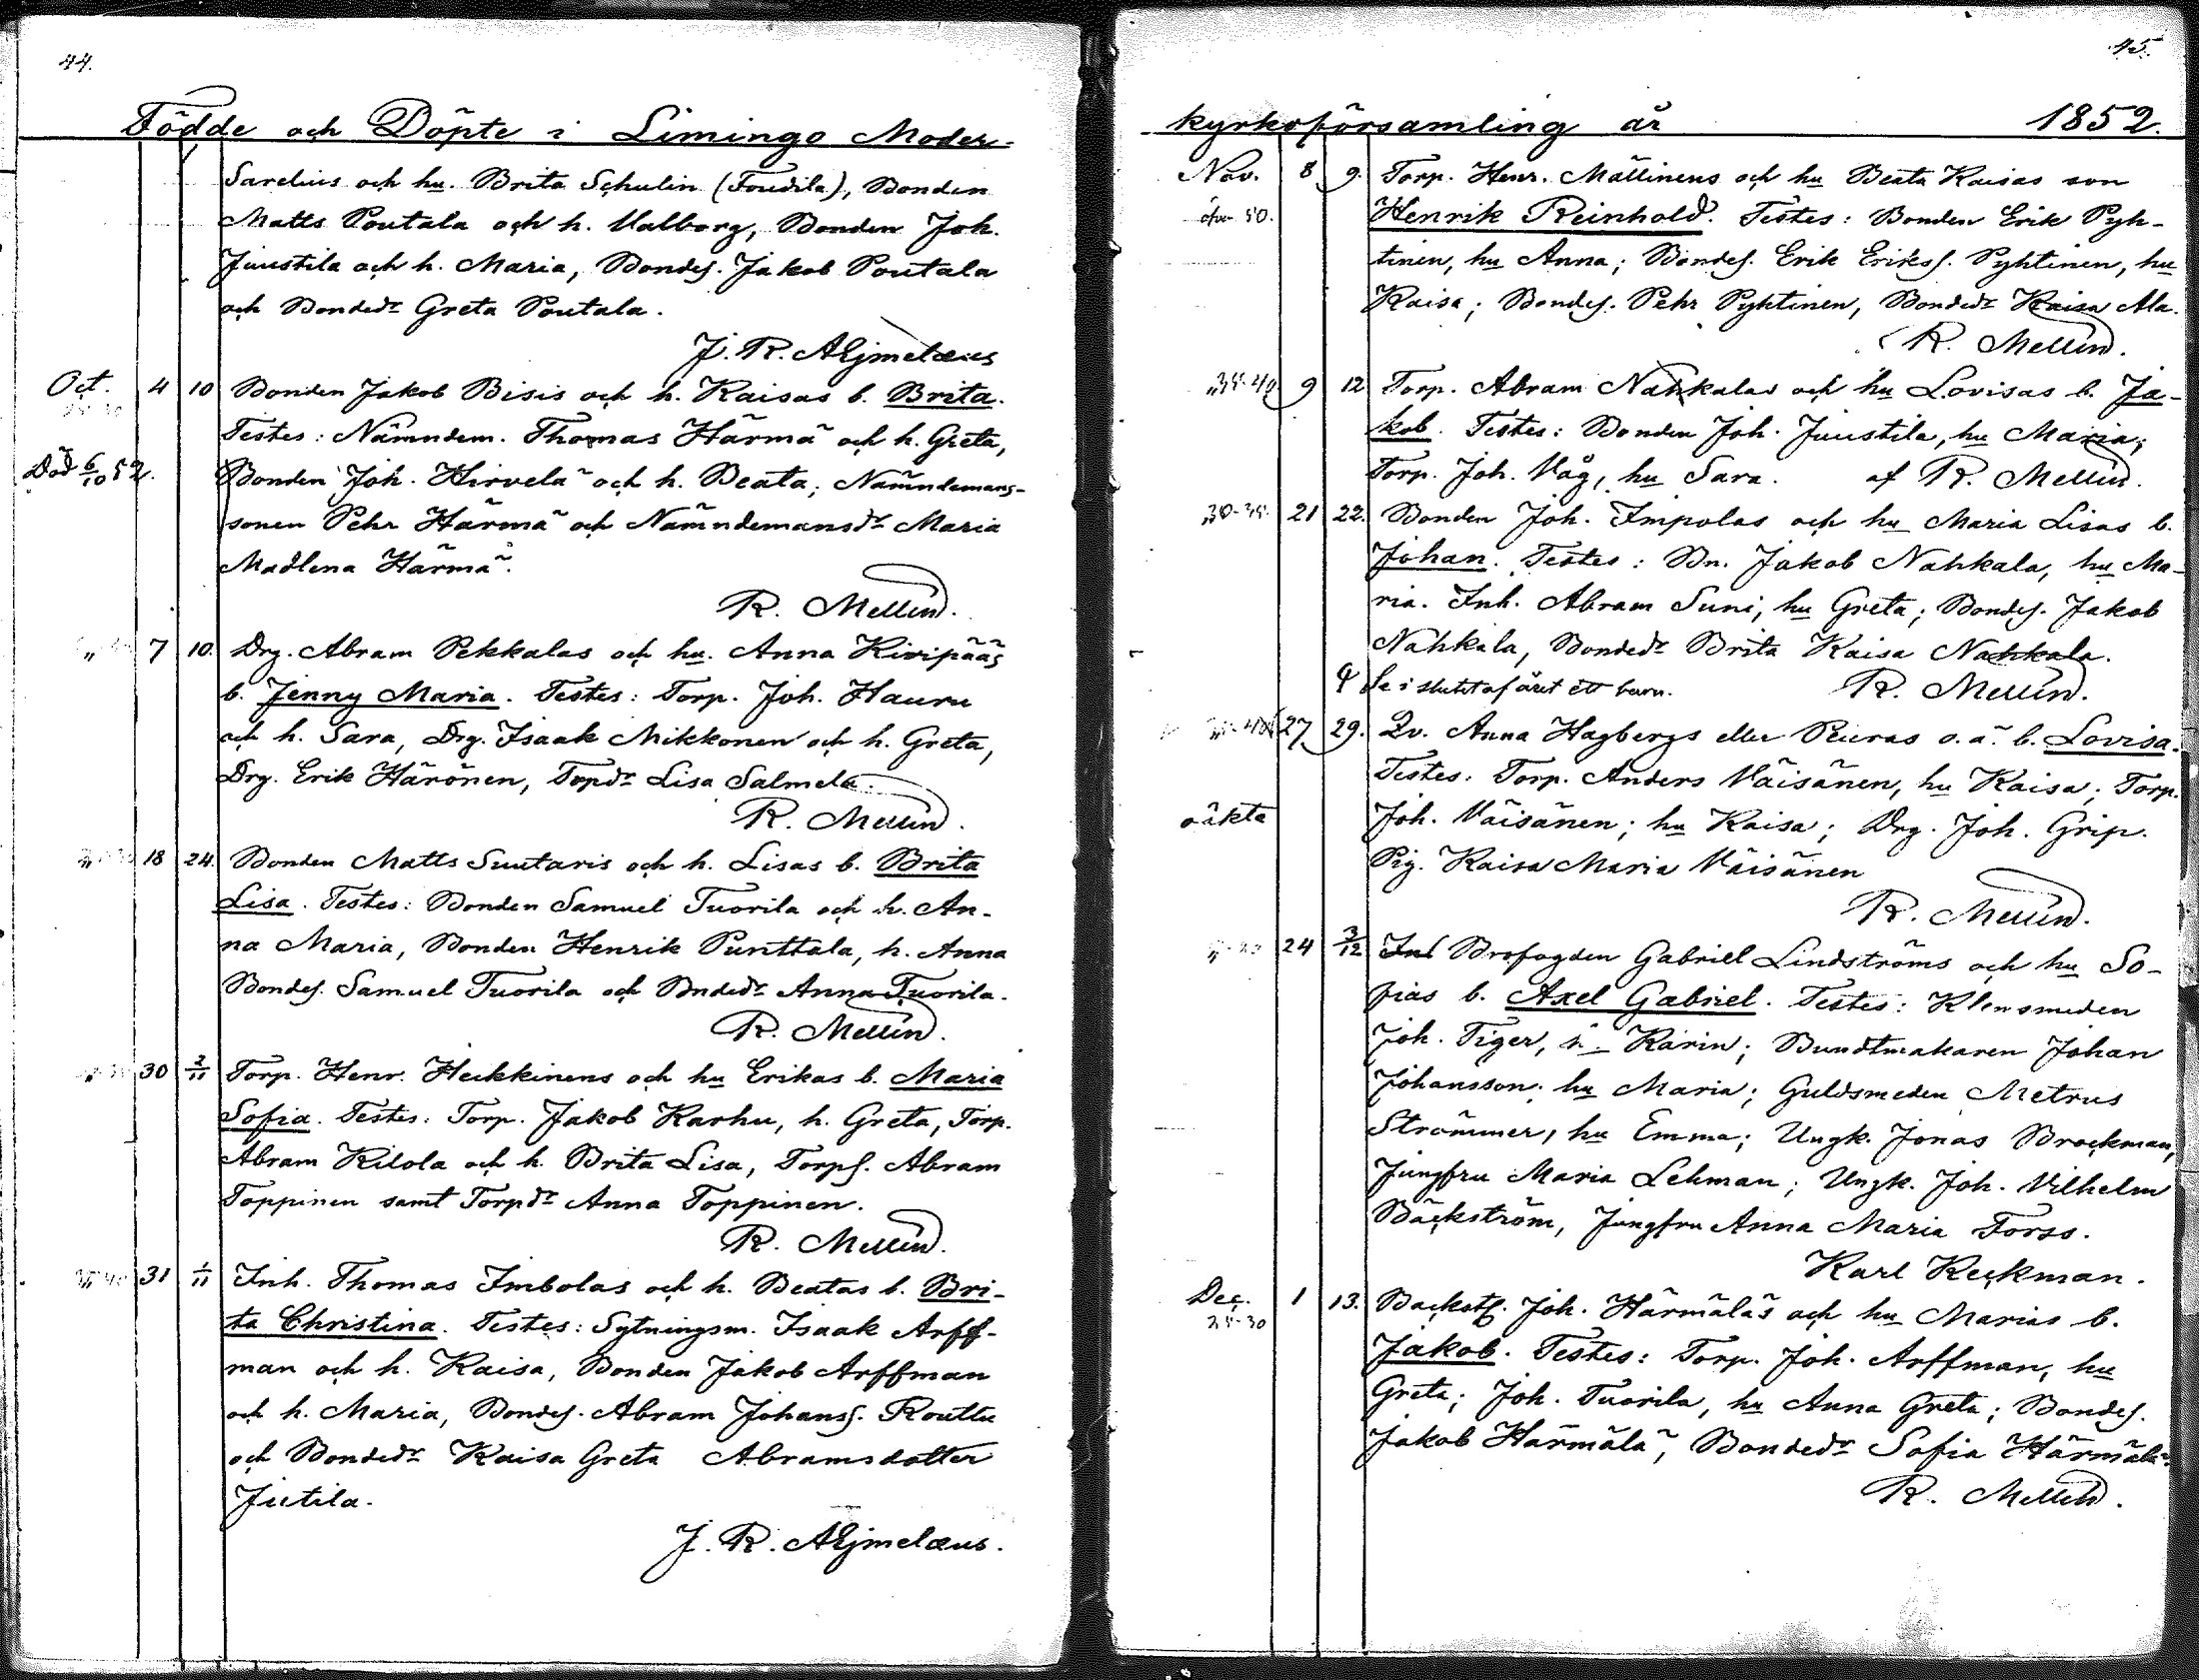 44.
Födde och Döpte i Limingo Moder-
Sarelius och hu. Brita Schulin (Foudila), Bonden
Matts Poutala och h. Valborg, Bonden Joh.
Juustila och h. Maria, Bondes. Jakob Poutala
och Bondedr Greta Poutala.
J. R. Aejmelæus
Oct. 4 10 Bonden Jakob Bisis och h. Kaisas b. Brita.
Testes: Nämndem. Thomas Härmä och h. Greta,
Död 6/10 52. Bonden Joh. Hirvelä och h. Beata; Nämndemans-
sonen Pehr Härmä och Nämndemansdr Maria
Madlena Härmä.
R. Mellin.
" 7 10. Drg. Abram Pekkalas och hu. Anna Kivipääs
b. Jenny Maria. Testes: Torp. Joh. Hauru
och h. Sara, Drg. Isaak Mikkonen och h. Greta,
Drg. Erik Härönen, Topdr Lisa Salmela.
R. Mellin.
" 18 24. Bonden Matts Suutaris och h. Lisas b. Brita
Lisa. Testes: Bonden Samuel Tuorila och h. An-
na Maria, Bonden Henrik Punttala, h. Anna
Bondes. Samuel Tuorila och Bndedr Anna Tuorila.
R. Mellin.
" 30 2/11 Torp. Henr. Heikkinens och hu Erikas b. Maria
Sofia. Testes: Torp. Jakob Karhu, h. Greta, Torp.
Abram Kilola och h. Brita Lisa, Torps. Abram
Toppinen samt Torpdr Anna Toppinen.
R. Mellin.
" 31 1/11 Inh. Thomas Imbolas och h. Beatas b. Bri-
ta Christina. Testes: Sytningsm. Isaak Arff-
man och h. Kaisa, Bonden Jakob Arffman
och h. Maria, Bondes. Abram Johans. Routtu
och Bondedr Kaisa Greta Abramsdotter
Jutila.
J. R. Aejmelæus.
45.
kyrkoförsamling år 1852.
Nov. 8 9. Torp. Henr. Mällinens och hu Beata Kaisas son
öfver 50. Henrik Reinhold. Testes: Bonden Erik Pyh-
tinen, hu Anna; Bondes. Erik Eriks. Pyhtinen, hu
Kaisa; Bondes. Pehr Pyhtinen, Bondedr Kaisa Ala.
R. Mellin.
" 35-40 9 12 Torp. Abram Nahkalas och hu Lovisas b. Ja-
kob. Testes: Bonden Joh. Juustila, hu Maria;
Torp. Joh. Våg, hu Sara. af R. Mellin.
" 30-35. 21 22. Bonden Joh. Impolas och hu Maria Lisas b.
Johan. Testes: Bn. Jakob Nahkala, hu Ma-
ria. Inh. Abram Suni, hu Greta; Bondes. Jakob
Nahkala, Bondedr Brita Kaisa Nahkala.
Se i slutet af året ett barn. R. Mellin.
" 27 29. Qv. Anna Hagbergs eller Peuras o.ä. b. Lovisa.
Testes: Torp. Anders Väisänen, hu Kaisa; Torp.
oäkta Joh. Väisänen; hu Kaisa; Drg. Joh. Grip.
Pig. Kaisa Maria Väisänen
R. Mellin.
" 24 3/12 Brofogden Gabriel Lindströms och hu So-
fias b. Axel Gabriel. Testes: Klensmeden
Joh. Tiger, h. Karin; Bundtmakaren Johan
Johansson; hu Maria; Guldsmeden Metrus
Strömmer, hu Emma; Ungk. Jonas Brockman,
Jungfru Maria Lehman; Ungk. Joh. Vilhelm
Bäckström, Jungfru Anna Maria Forss.
Karl Keckman.
Dec. 1 13. Backst. Joh. Härmäläs och hu Marias b.
25-30
Jakob. Testes: Torp. Joh. Arffman, hu
Greta; Joh. Tuorila, hu Anna Greta; Bondes.
Jakob Härmälä, Bondedr Sofia Härmälä.
R. Mellin.